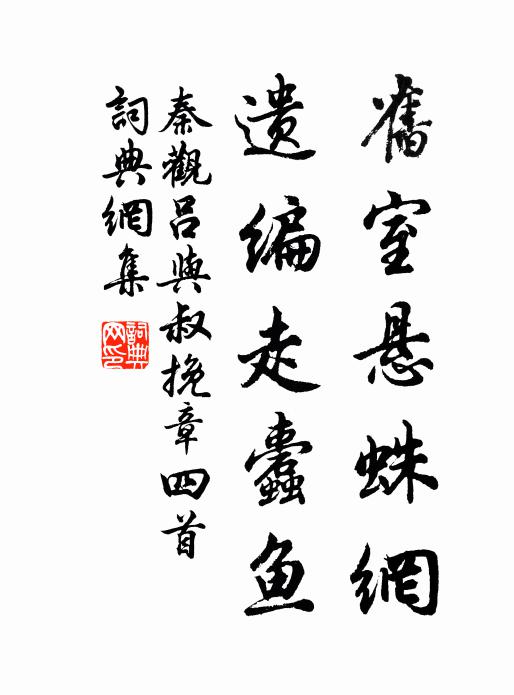 舊室悬蛛網
遗编走蠹魚
秦觀吕與叔挽章四首
詞典網集
詞典網印